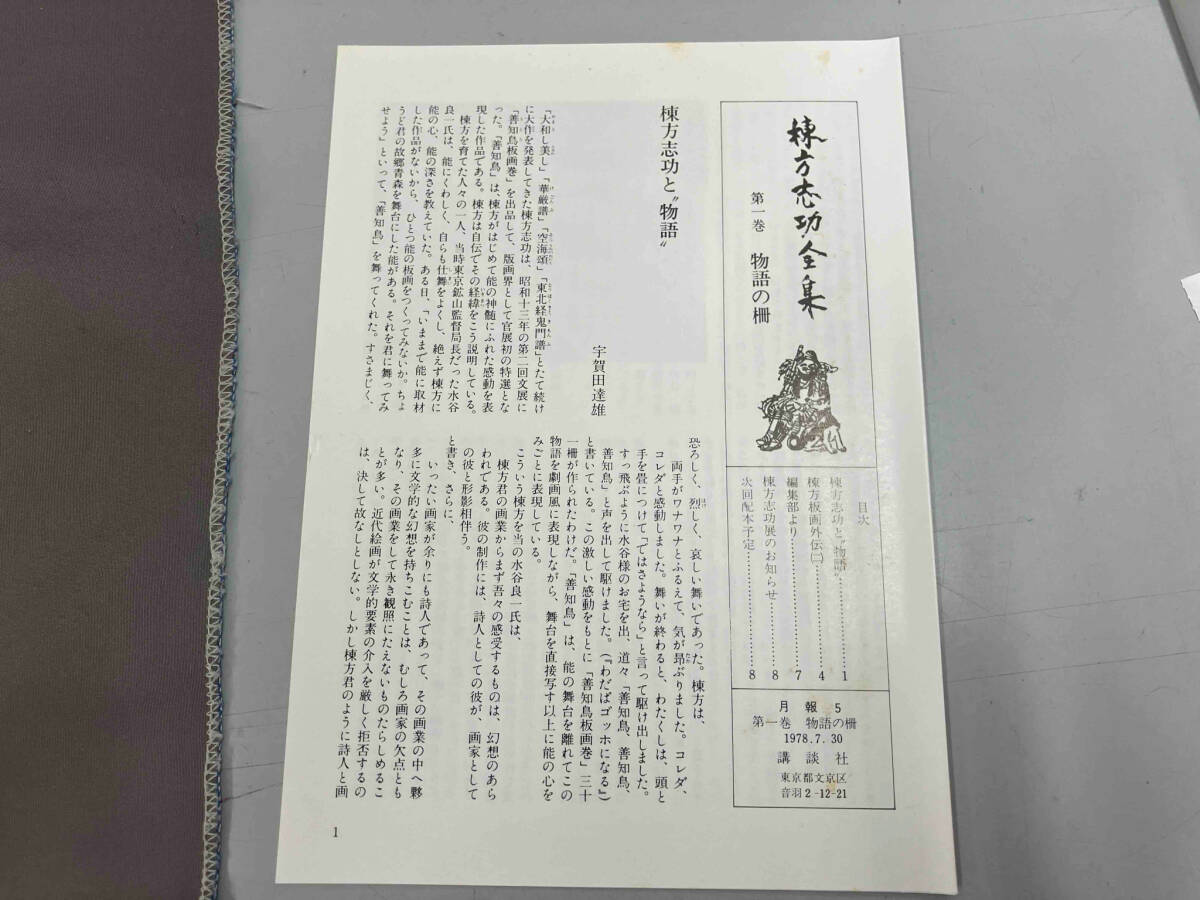 棟方志功全集
第一巻 物語の柵
目次
棟方志功と〝物語〟……………1
棟方板画外伝(二)……………4
編集部より……………7
棟方志功展のお知らせ……………8
次回配本予定……………8
月報 5
第一巻 物語の柵
1978.7.30
講談社
東京都文京区
音羽2-12-21
棟方志功と〝物語〟
宇賀田達雄
「大和し美し」「華厳譜」「空海頌」「東北経鬼門譜」とたて続け
に大作を発表してきた棟方志功は、昭和十三年の第二回文展に
「善知鳥板画巻」を出品して、版画界として官展初の特選とな
った。「善知鳥」は、棟方がはじめて能の神髄にふれた感動を表
現した作品である。棟方は自伝でその経緯をこう説明している。
棟方を育てた人々の一人、当時東京鉱山監督局長だった水谷
良一氏は、能にくわしく、自らも仕舞をよくし、絶えず棟方に
能の心、能の深さを教えていた。ある日、「いままで能に取材
した作品がないから、ひとつ能の板画をつくってみないか。ちょ
うど君の故郷青森を舞台にした能がある。それを君に舞ってみ
せよう」といって、「善知鳥」を舞ってくれた。すさまじく、
恐ろしく、烈しく、哀しい舞いであった。棟方は、
両手がワナワナとふるえて、気が昂ぶりました。コレダ、
コレダと感動しました。舞いが終わると、わたくしは、頭と
手を畳につけて「ではさようなら」と言って駆け出しました。
すっ飛ぶように水谷様のお宅を出、道々「善知鳥、善知鳥、
善知鳥」と声を出して駆けました。(『わだばゴッホになる』)
と書いている。この激しい感動をもとに「善知鳥板画巻」三十
一柵が作られたわけだ。「善知鳥」は、能の舞台を離れてこの
物語を劇画風に表現しながら、舞台を直接写す以上に能の心を
みごとに表現している。
こういう棟方を当の水谷良一氏は、
棟方君の画業からまず吾々の感受するものは、幻想のあら
われである。彼の制作には、詩人としての彼が、画家として
の彼と形影相伴う。
と書き、さらに、
いったい画家が余りにも詩人であって、その画業の中へ夥
多に文学的な幻想を持ちこむことは、むしろ画家の欠点とも
なり、その画業をして永き観照にたえないものたらしめるこ
とが多い。近代絵画が文学的要素の介入を厳しく拒否するの
は、決して故なしとしない。しかし棟方君のように詩人と画
1